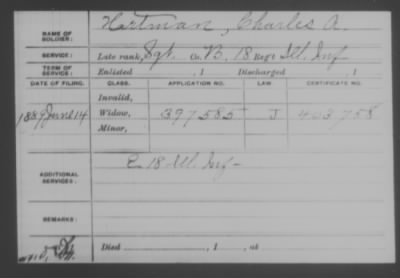 NAME OF SOLDIER: Hartman, Charles A.
SERVICE: Late rank, Sgt. Co. B, 18 Reg't Ill. Inf
TERM OF SERVICE: Enlisted , 1 Discharged , 1
DATE OF FILING. CLASS. APPLICATION NO. LAW. CERTIFICATE NO.
Invalid,
1889 June 14 Widow, 397585 J 403758
Minor,
ADDITIONAL SERVICES: E 18 Ill. Inf
REMARKS:
Died , 1 , at